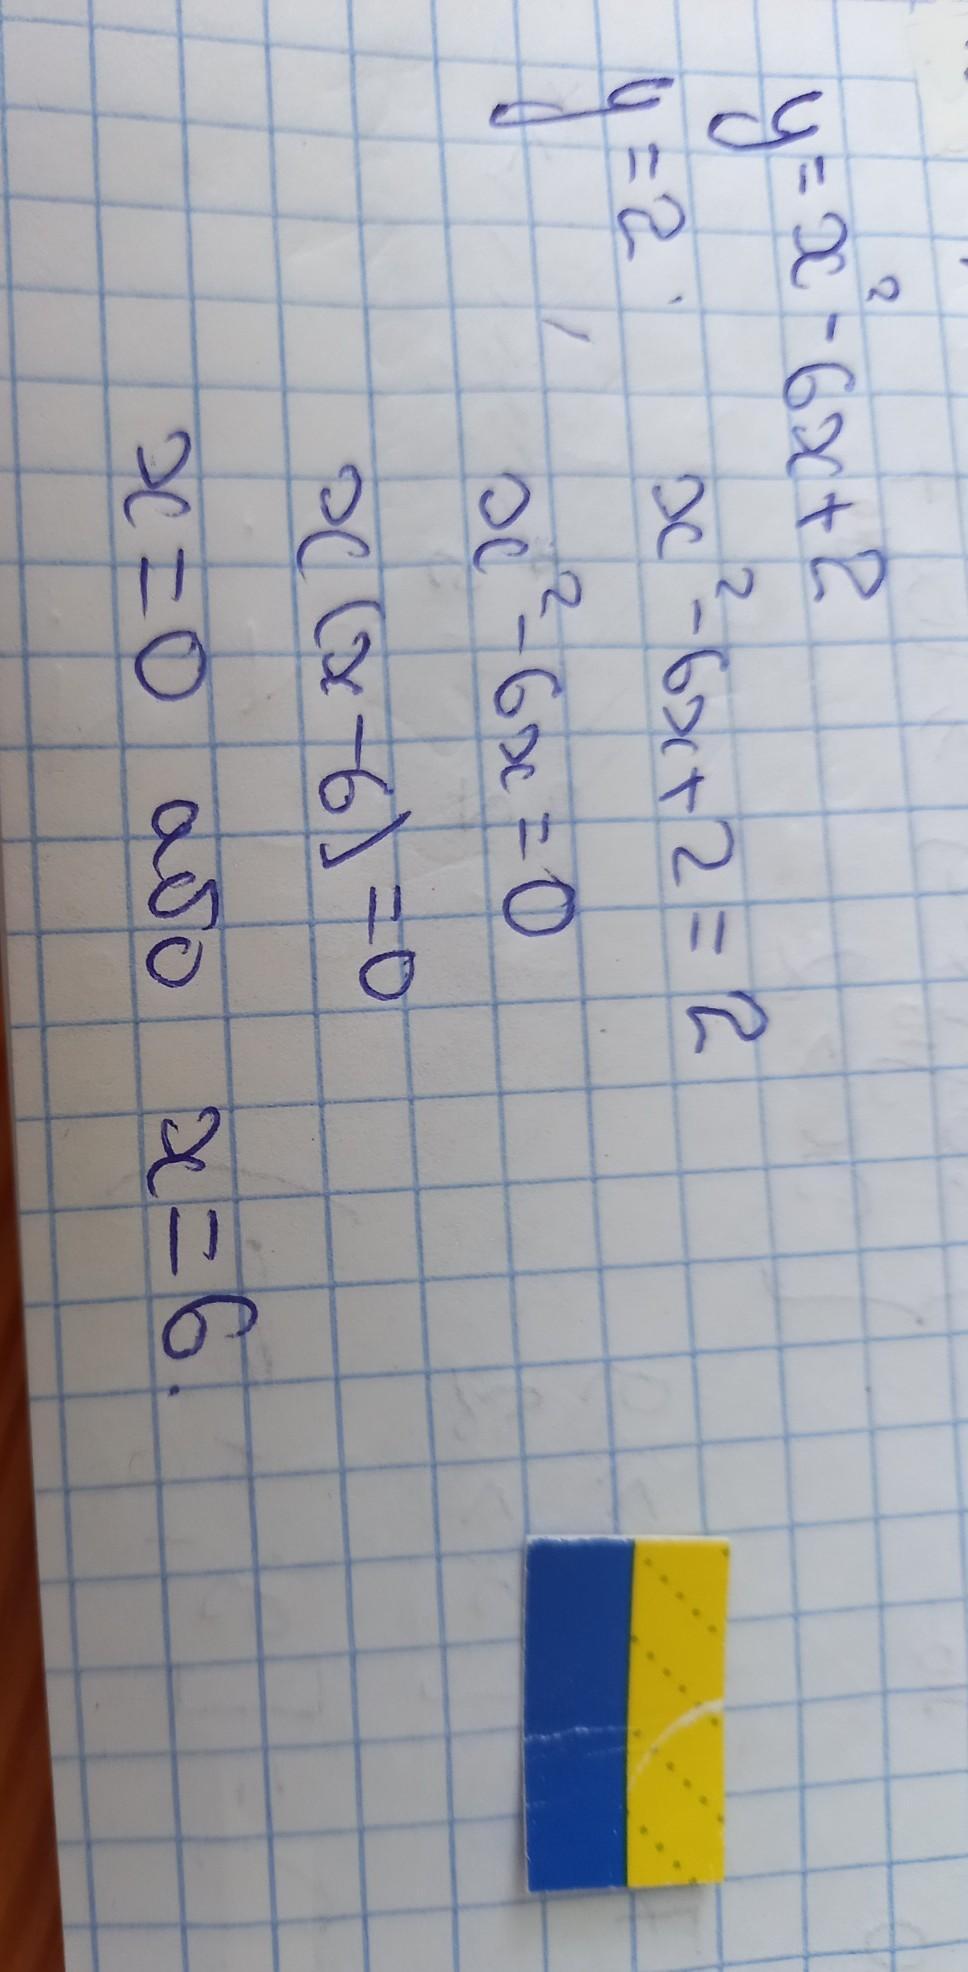 y = x² - 6x + 2
y = 2
x² - 6x + 2 = 2
x² - 6x = 0
x(x - 6) = 0
x = 0 або x = 6.